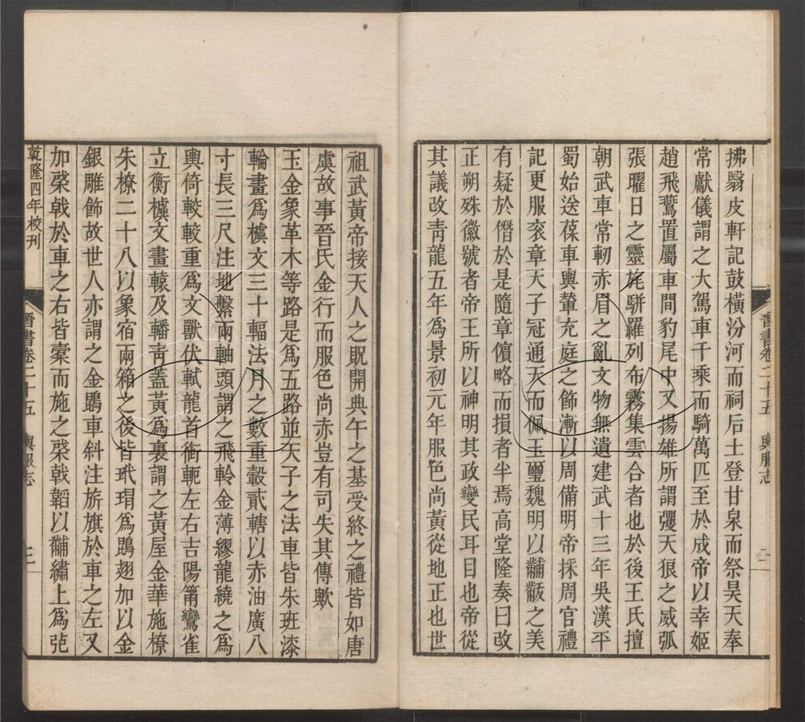 拂翳皮軒記鼓橫汾河而祠后土登甘泉而祭昊天奉
常獻儀謂之大駕車千乘而騎萬匹至於成帝以幸姬
趙飛鷰置屬車間豹尾中又揚雄所謂彏天狼之威弧
張曜日之靈旄駢羅列布霧集雲合者也於後王氏擅
朝武車常軔赤眉之亂文物無遺建武十三年吳漢平
蜀始送葆車輿輦充庭之飾漸以周備明帝採周官禮
記更服衮章天子冠通天而佩玉璽魏明以黼黻之美
有疑於僭於是隨章儐略而損者半焉高堂隆奏曰改
正朔殊徽號者帝王所以神明其政變民耳目也帝從
其議改青龍五年為景初元年服色尚黃從地正也世
晉書卷二十五 輿服志 二
祖武黃帝接天人之貺開典午之基受終之禮皆如唐
虞故事晉氏金行而服色尚赤豈有司失其傳歟
玉金象革木等路是為五路並天子之法車皆朱班漆
輪畫為櫎文三十輻法月之數重轂貳轄以赤油廣八
寸長三尺注地繫兩軸頭謂之飛軨金薄繆龍繞之為
輿倚較較重為文獸伏軾龍首銜軛左右吉陽筩鸞雀
立衡櫎文畫轅及轓青蓋黃為裏謂之黃屋金華施橑
朱橑二十八以象宿兩箱之後皆玳瑁為鵾翅加以金
銀雕飾故世人亦謂之金鵾車斜注旂旗於車之左又
加棨戟於車之右皆橐而施之棨戟韜以黼繡上為
乾隆四年校刊
晉書卷二十五 輿服志 二